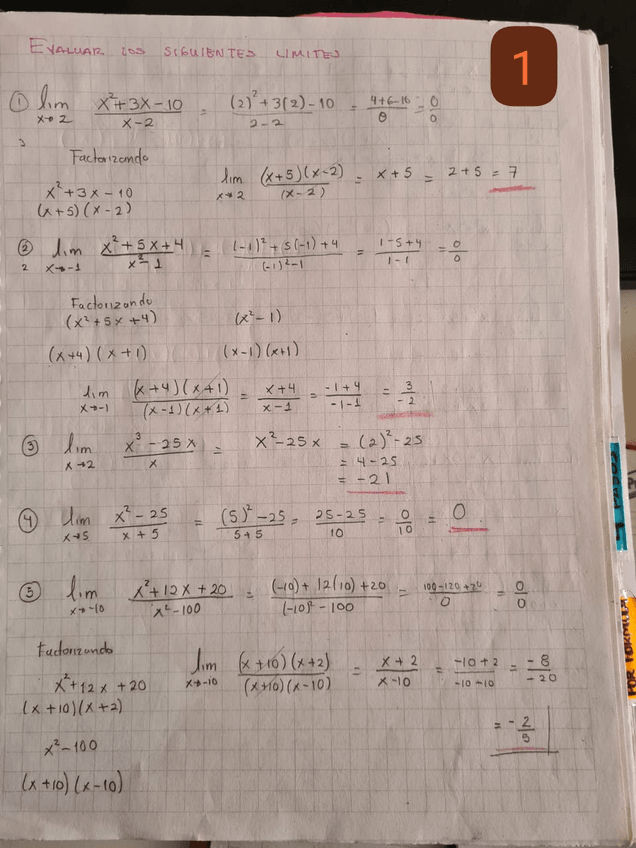 EVALUAR LOS SIGUIENTES LIMITES
1
① lim x→2 (x²+3x-10)/(x-2) = ((2)²+3(2)-10)/(2-2) = (4+6-10)/0 = 0/0
Factorizando
x²+3x-10
(x+5)(x-2)
lim x→2 (x+5)(x-2)/(x-2) = x+5 = 2+5 = 7
② lim x→-1 (x²+5x+4)/(x²-1) = ((-1)²+5(-1)+4)/((-1)²-1) = (1-5+4)/(1-1) = 0/0
Factorizando
(x²+5x+4) (x²-1)
(x+4)(x+1) (x-1)(x+1)
lim x→-1 (x+4)(x+1)/(x-1)(x+1) = (x+4)/(x-1) = (-1+4)/(-1-1) = 3/-2
③ lim x→2 (x³-25x)/x = x²-25x = (2)²-25
= 4-25
= -21
④ lim x→5 (x²-25)/(x+5) = ((5)²-25)/(5+5) = (25-25)/10 = 0/10 = 0
⑤ lim x→-10 (x²+12x+20)/(x²-100) = ((-10)+12(10)+20)/((-10)²-100) = (100-120+20)/0 = 0/0
Factorizando
x²+12x+20
(x+10)(x+2)
lim x→-10 (x+10)(x+2)/(x+10)(x-10) = (x+2)/(x-10) = (-10+2)/(-10-10) = -8/-20
= -2/5
x²-100
(x+10)(x-10)
POR FORMULA